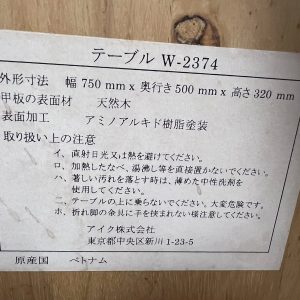 テーブル W-2374
外形寸法 幅750mm x 奥行き500mm x 高さ320mm
甲板の表面材 天然木
表面加工 アミノアルキド樹脂塗装
取り扱い上の注意
イ、直射日光又は熱を避けてください。
ロ、加熱したなべ、湯沸し等を直接置かないでください。
ハ、著しい汚れを落とす時は、薄めた中性洗剤を
使用してください。
ニ、テーブルの上に乗らないでください。大変危険です。
ホ、折れ脚の金具に手を挟まれない様注意してください。
アイク株式会社
東京都中央区新川1-23-5
原産国 ベトナム